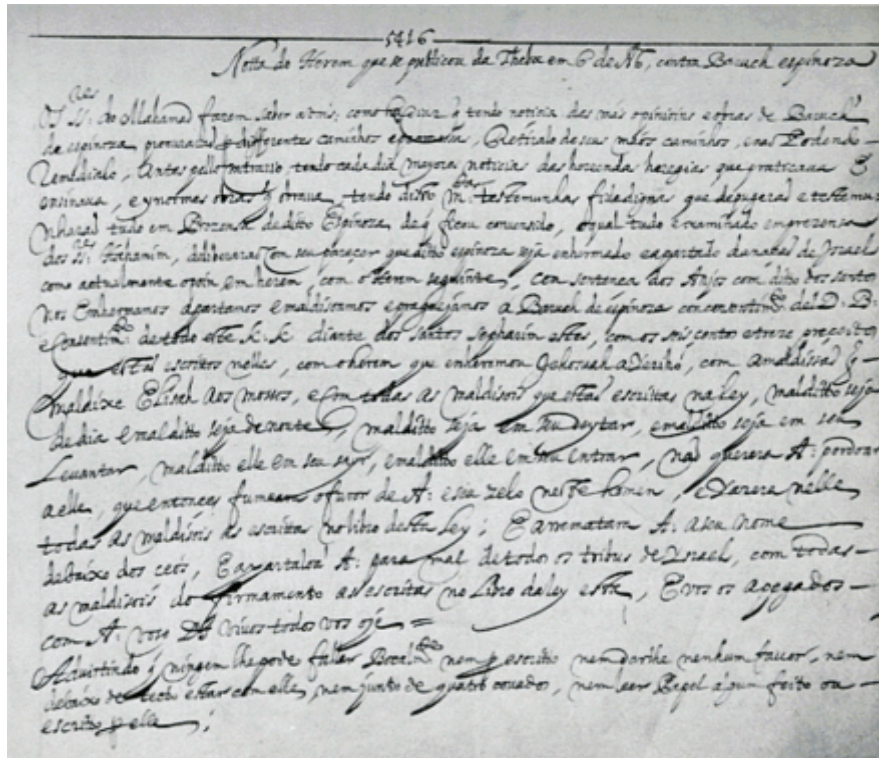 5416
Notta do Herem que se publicou da Theba em 6 de Ab, contra Baruch espinoza
Os SSres do Mahamad fazem saber a vms: como ha dias q tendo noticia das más opinioins e obras de Baruch
de espinoza procuraraõ p differentes caminhos e promesas, Retiralo de seus máos caminhos, e naõ Podendo
Remedialo, Antes pello contrario tendo cada dia mayores noticias das horrendas heregias que praticava E
ensinava, e ynormes obras q obrava, tendo disto mtas testemunhas fidedignas que depugeraõ e testemu
nharaõ tudo em Prezensa de ditto Espinoza, de q ficou convensido, o qual tudo examinado em prezensa
dos SSres Hahamim, deliberaraõ com seu parecer que ditto espinoza seja enhermado e apartado da naçaõ de Israel
como actualmente o poin em herem, com o Herem seguinte, Con sentença dos Anjos com ditto dos santos
nos Enhermamos apartamos e maldisoamos e praguejamos a Baruch de espinoza con consentimto del D. B.
e Consentimto de todo este K. K. diante dos santos sepharim estes, com os seis centos e treze preceitos
que estaõ escrittos nelles, com o herem que enheremou Jehosuah a Yeriho, com a maldissaõ q
maldixe Elisah aos mossos, e com todas as maldisois que estaõ escrittas na ley, malditto seja
de dia e malditto seja de noute, malditto seja em seu deytar, e malditto seja em seu
Levantar, malditto elle em seu sayr, e malditto elle em seu entrar, naõ querera A: perdoar
a elle, que entonces fumeara o furor de A: e seu zelo neste homem, e yazera nelle
todas as maldisois as escrittas no libro desta ley; E arrematara A: a seu nome
debaixo dos ceos, E apartaloa A: para mal de todos os tribus de Ysrael, com todas
as maldisois do firmamento as escritas no Libro da ley esta, E vos os apegados
com A: voso Ds vivos todos vos oje =
Advirtindo q ningem lhe pode fallar Bocalmte nem p escritto nem darlhe nenhum favor, nem
debaixo de tecto estar con elle, nem junto de quatro covados, nem leer Papel algum feito ou
escritto p elle;